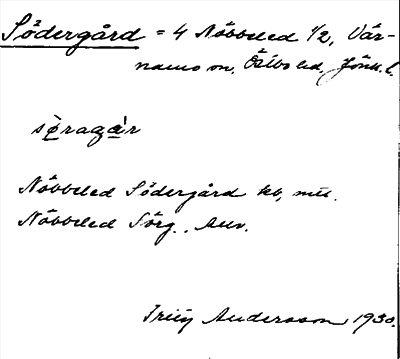 Södergård = 4 Nöbbeled 1/2, Vär-
namo sn, Östbo hd, Jönk. l.
Nöbbeled Södergård kb,
Nöbbeled Sörg.
Andersson 1930.